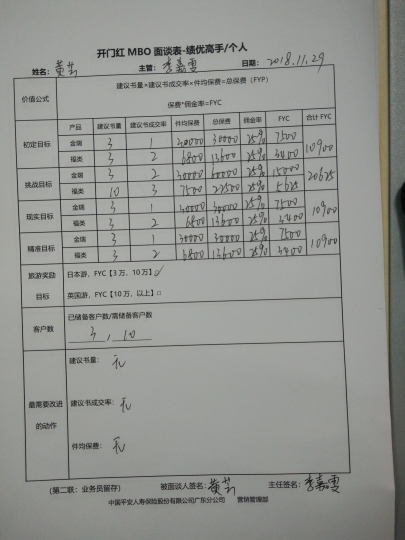 开门红 MBO 面谈表-绩优高手/个人
姓名：黄芸 主管：李嘉雯 日期：2018.11.29
价值公式 建议书量*建议书成交率*件均保费=总保费（FYP）
保费*佣金率=FYC
产品 建议书量 建议书成交率 件均保费 总保费 佣金率 FYC 合计 FYC
初定目标 金瑞 3 1 30000 30000 25% 7500 10900
福类 3 2 6800 13600 25% 3400
挑战目标 金瑞 3 2 30000 60000 25% 15000 20625
福类 10 3 7500 22500 25% 5625
现实目标 金瑞 3 1 30000 30000 25% 7500 10900
福类 3 2 6800 13600 25% 3400
精准目标 金瑞 3 1 30000 30000 25% 7500 10900
福类 3 2 6800 13600 25% 3400
旅游奖励目标 日本游，FYC【3 万，10 万】☑
英国游，FYC【10 万，以上】□
客户数 已储备客户数/需储备客户数
3 , 10
最需要改进的动作 建议书量：无
建议书成交率：无
件均保费：无
（第二联：业务员留存） 被面谈人签名：黄芸 主任签名：李嘉雯
中国平安人寿保险股份有限公司广东分公司 营销管理部